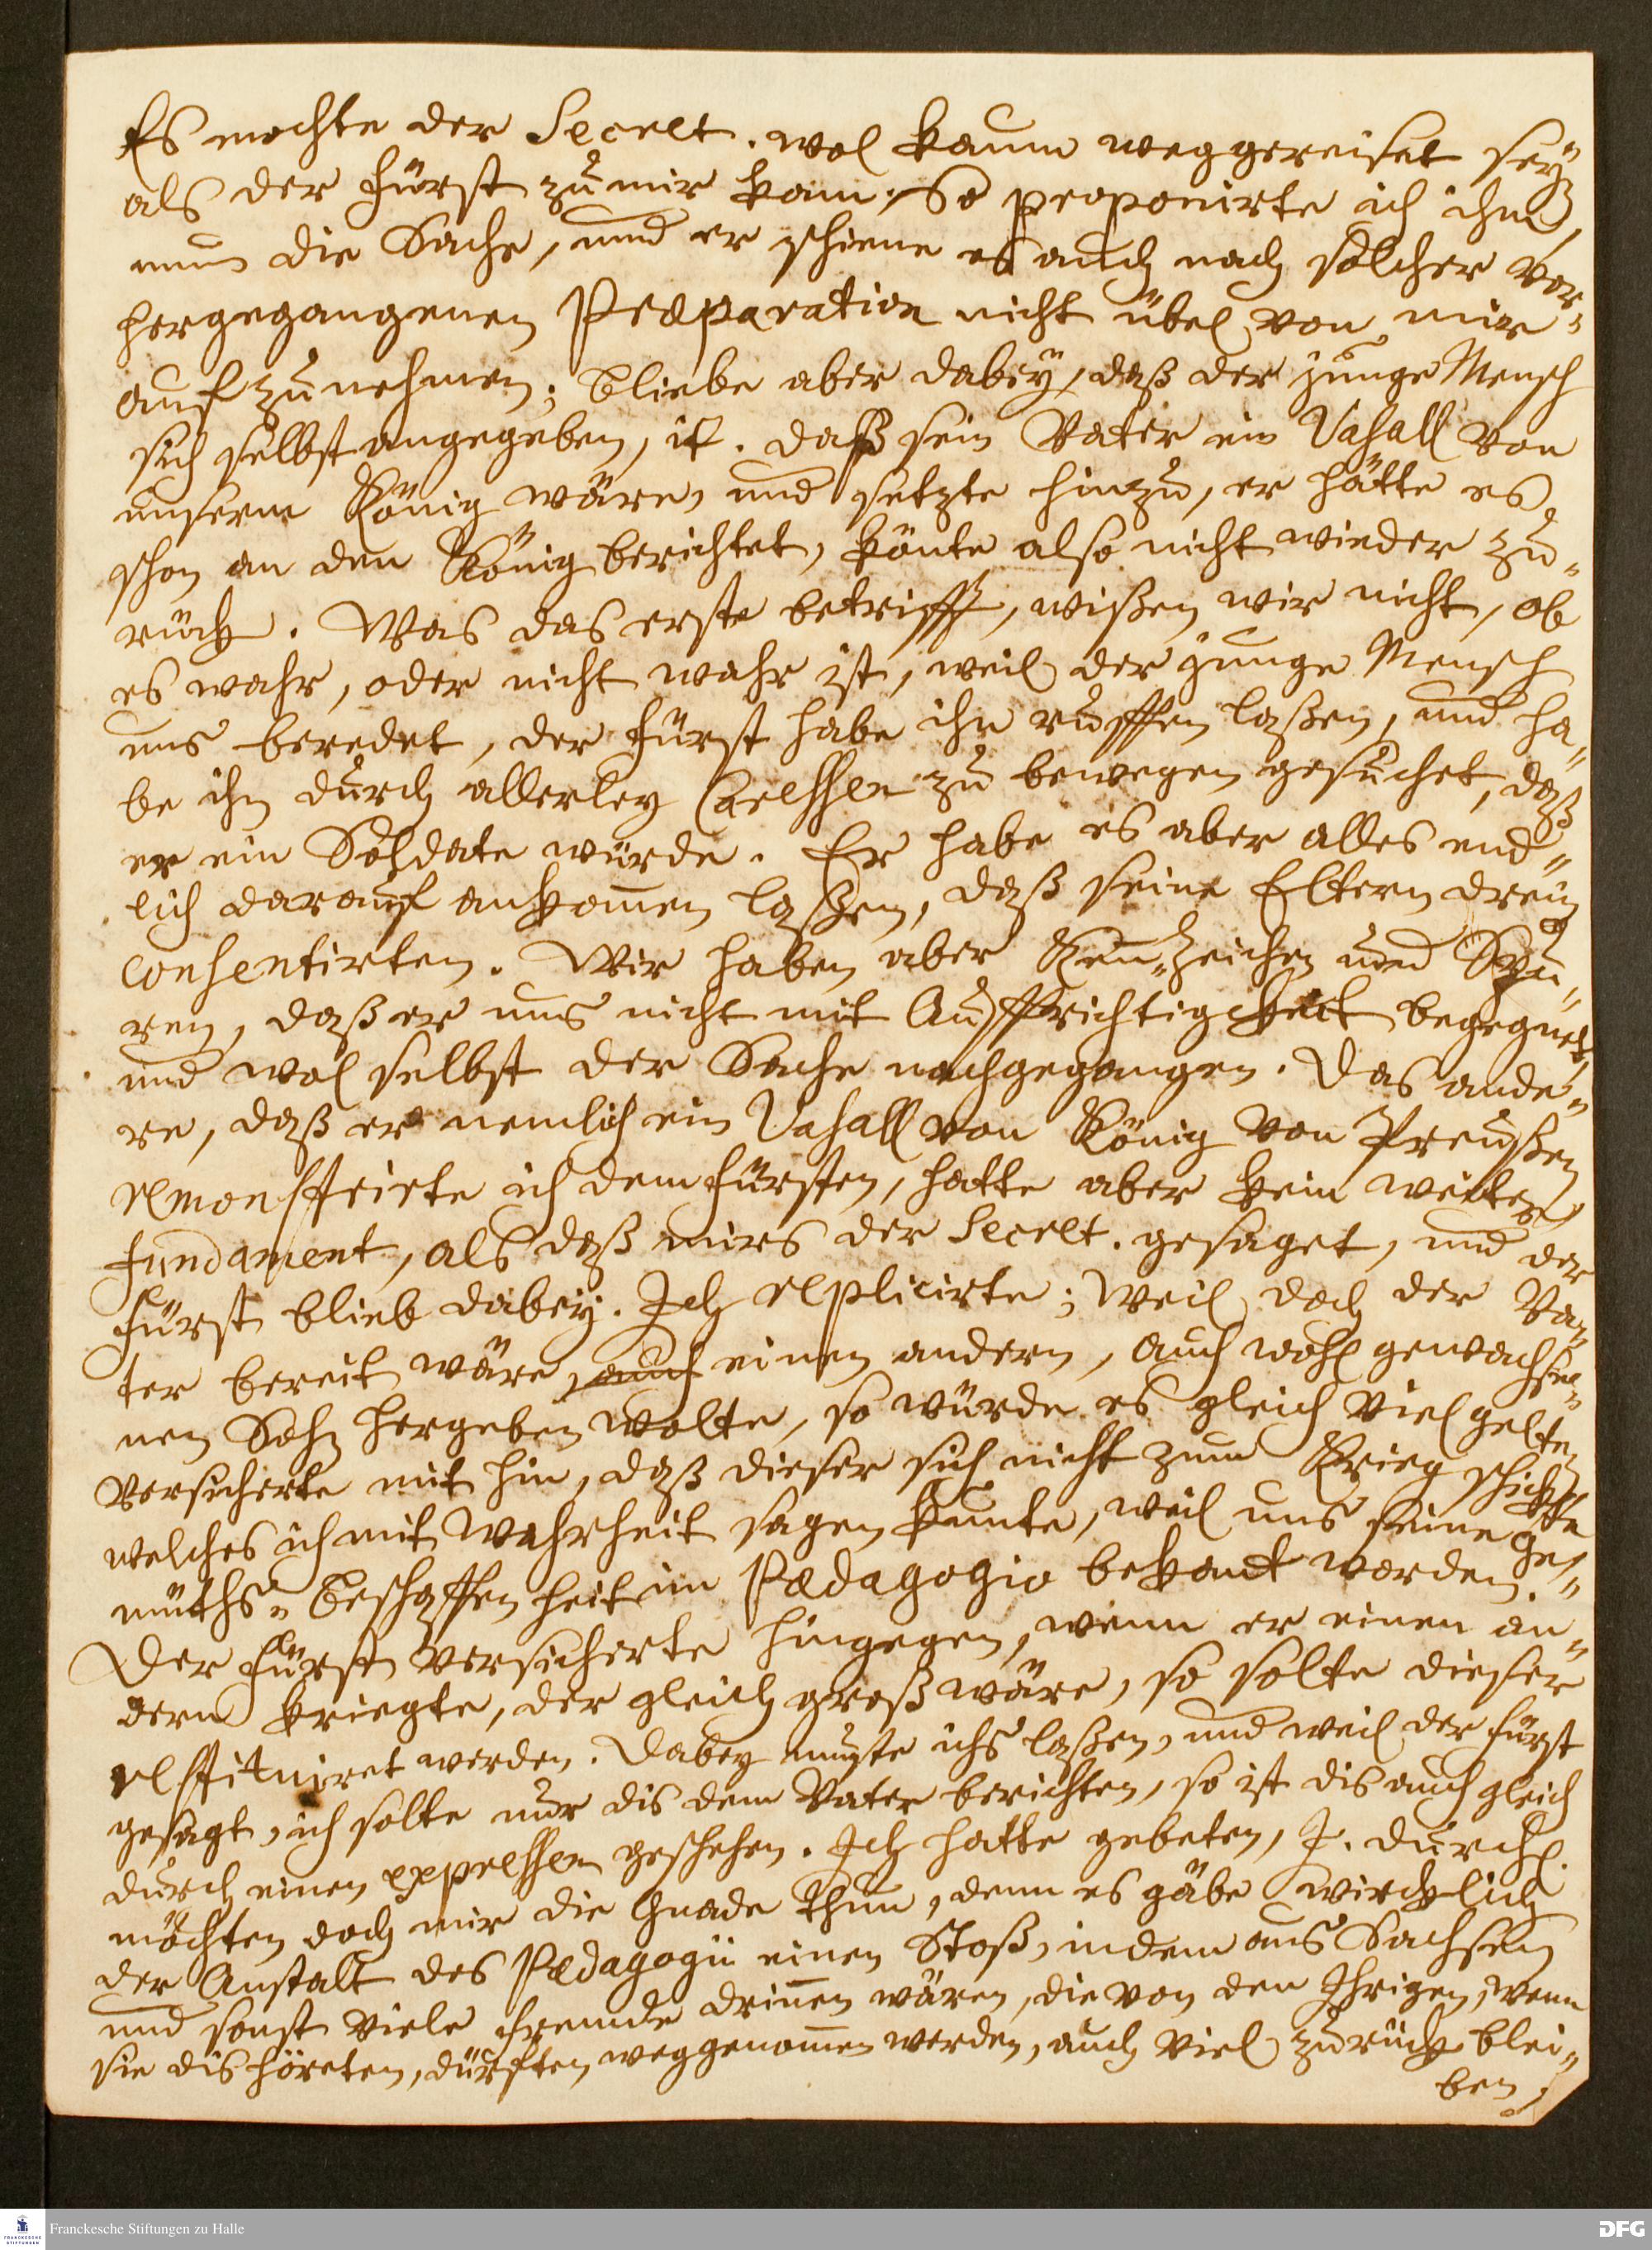 Es mochte der Secret. wol kaum weggereiset seyn
als der Fürst zu mir kam; So proponirte ich ihm
nun die Sache, und er schiene es auch nach solcher vor-
hergegangenen Præparation nicht übel von mir
aufzunehmen; bliebe aber dabey, daß der junge Mensch
sich selbst angegeben, it. daß sein Vater ein Vasall von
unserm König wäre, und setzte hinzu, er hätte es
schon an den König berichtet, könte also nicht wieder zu-
rück. Was das erste betrifft, wißen wir nicht, ob
es wahr, oder nicht wahr ist, weil der junge Mensch
uns beredet, der Fürst habe ihn ruffen laßen, und ha-
be ihn durch allerley Caressen zu bewegen gesuchet, daß
er ein Soldate würde. Er habe es aber alles end-
lich darauf ankom̄en laßen, daß seine Eltern drein
consentirten. Wir haben aber Ken̄-Zeichen und Spu-
ren, daß er uns nicht mit Auffrichtigkeit begegnet,
und wol selbst der Sache nachgegangen. Das ande-
re, daß er nemlich ein Vasall von König von Preußen
remonstrirte ich dem Fürsten, hatte aber kein weiter
Fundament, als daß mirs der Secret. gesaget, und der
Fürst blieb dabey. Ich replicirte; Weil doch der Va-
ter bereit wäre, auch einen andern, auch wohl gewachse-
nen Sohn hergeben wolte, so würde es gleich viel gelten
versicherte mit hin, daß dieser sich nicht zum Krieg schickte
welches ich mit Wahrheit sagen kunte, weil uns seine Ge-
müths-Beschaffenheit im Pædagogio bekant worden.
Der Fürst versicherte hingegen, wenn er einen an-
dern kriegte, der gleich groß wäre, so solte dieser
restituiret werden. Dabey muste ichs laßen, und weil der Fürst
gesagt, ich solte nur dis dem Vater berichten, so ist dis auch gleich
durch einen expressen geschehen. Ich hatte gebeten, I. Durchl.
möchten doch mir die Gnade thun, denn es gäbe wircklich
der Anstalt des Pædagogii einen Stoß, indem aus Sachsen
und sonst viele fremde drin̄en wären, die von den Ihrigen, wenn
sie dis höreten, dürften weggenom̄en werden, auch viel zurück blei-
ben,
Franckesche Stiftungen zu Halle
DFG